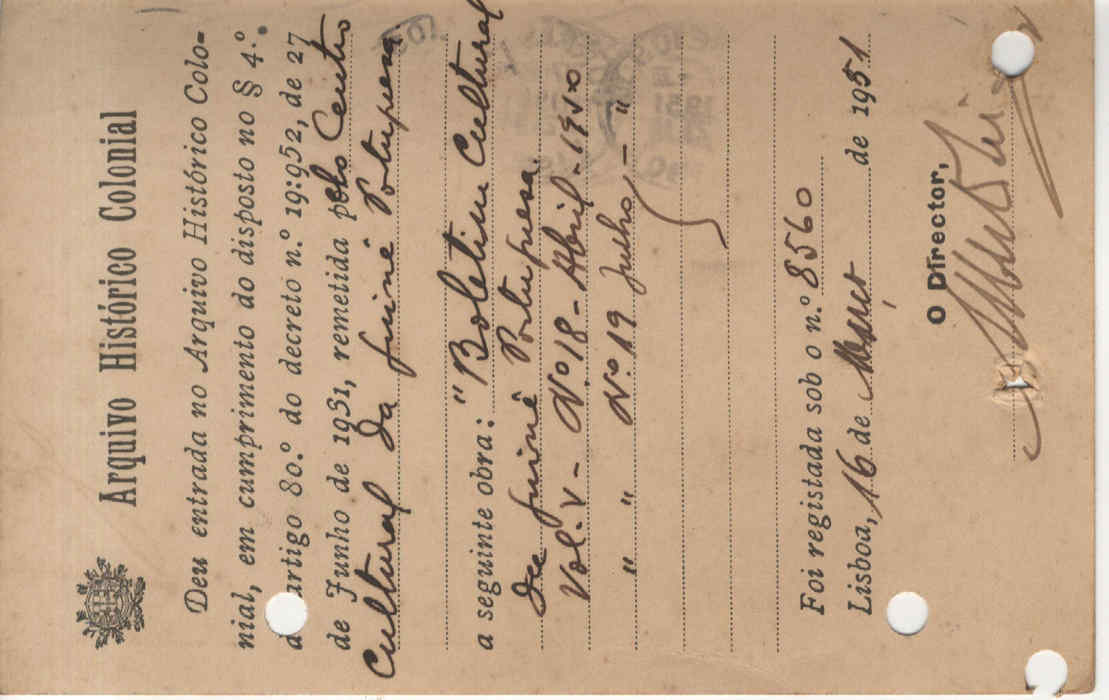 Arquivo Histórico Colonial
Deu entrada no Arquivo Histórico Colo-
nial, em cumprimento do disposto no § 4.º
do artigo 80.º do decreto n.º 19:952, de 27
de Junho de 1931, remetida pelo Centro
Cultural da Guiné Portuguesa
a seguinte obra: "Boletim Cultural
da Guiné Portuguesa
Vol. V - Nº 18 - Abril - 1950
" " Nº 19 Julho - "
Foi registada sob o n.º 8560
Lisboa, 16 de Março de 1951
O Director,